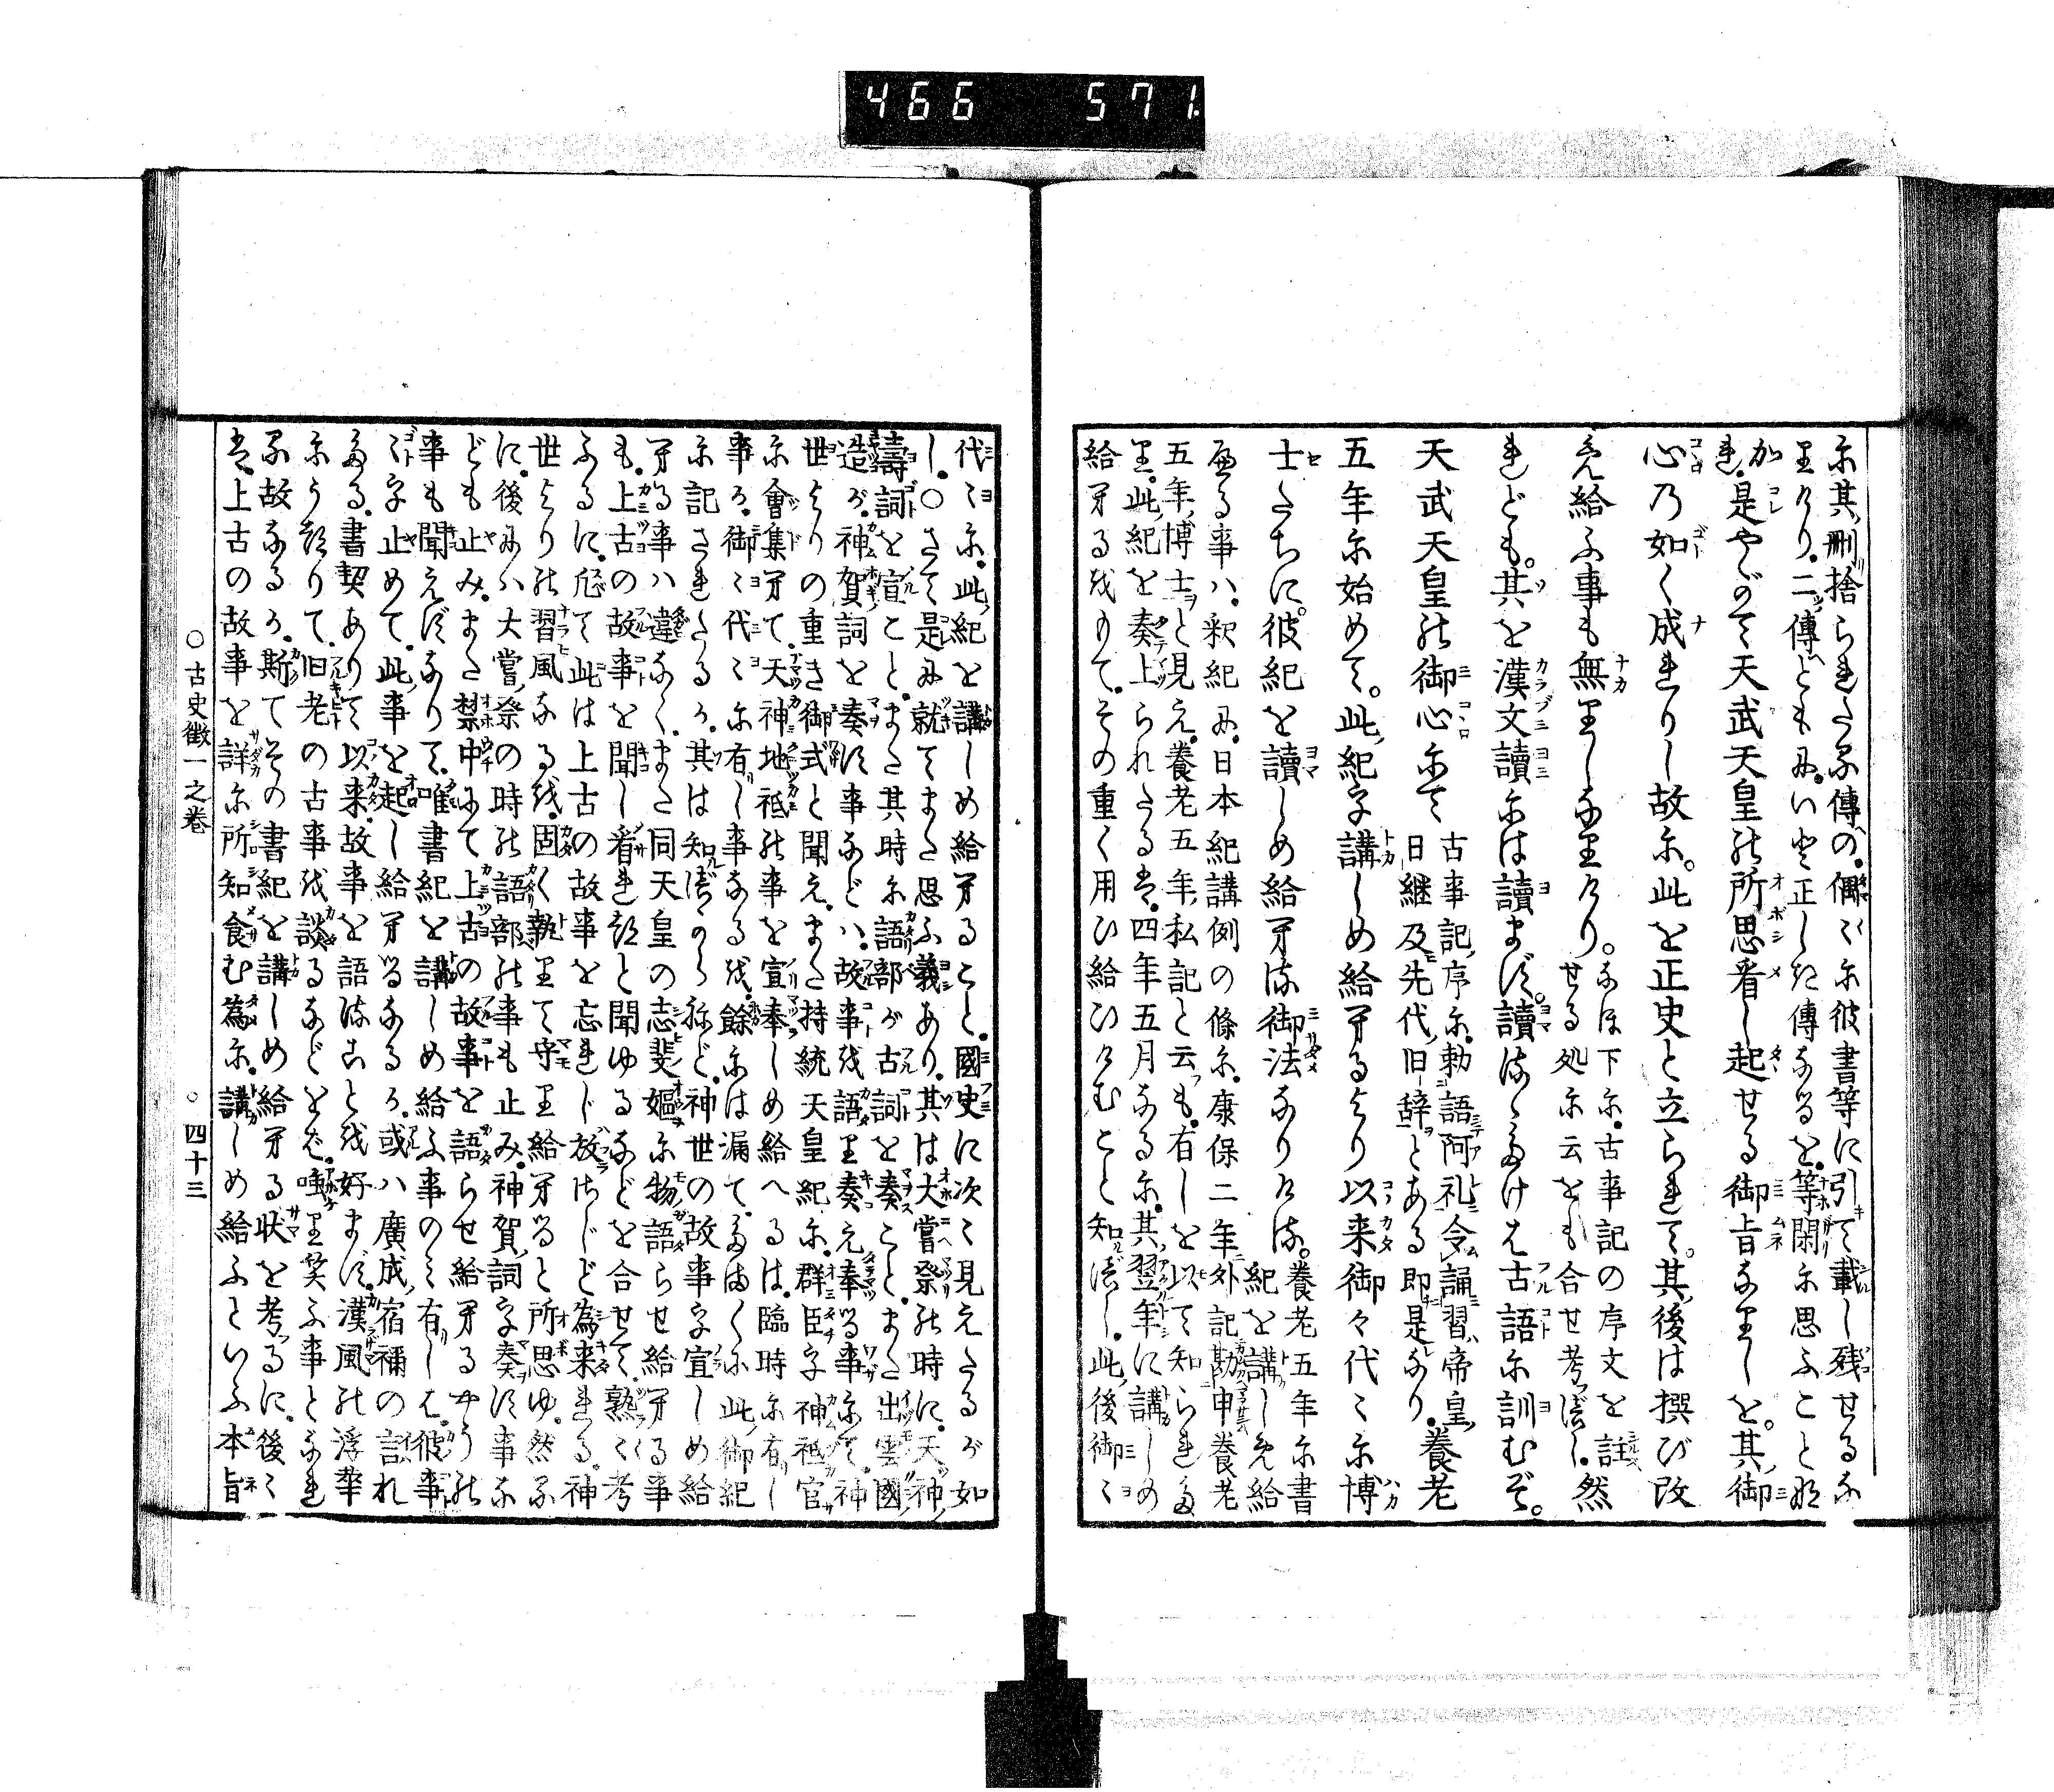 466 571.
尓其削捨られたる傳の偶々尓彼書等に引て載し残せるな
りけり二傳ともみいと正しき傳なるを等閑尓思ふこと勿
れ是やがて天武天皇の所思看し起せる御旨なりしを其御
心乃如く成れりし故尓此を正史と立られて其後は撰び改
め給ふ事も無りしなりけりなほ下尓古事記の序文を註
せる処尓云をも合せ考べし然
れども其を漢文讀尓は讀まず讀るゝだけは古語尓訓むぞ
天武天皇の御心尓て古事記序尓勅語阿礼令誦習帝皇
日継及先代旧辞とある即是なり養老
五年尓始めて此紀を講しめ給へるより以来御々代々尓博
士たちに彼紀を讀しめ給へる御法なりける養老五年尓書
紀を講しめ給
へる事ハ釈紀み日本紀講例の條尓康保二年外記勘申養老
五年博士と見え養老五年私記と云も有しを以て知られた
り此紀を奏上られたるは四年五月なる尓其翌年に講しめ
給へるをもてその重く用ひ給ひけむこと知べし此後御々
代々尓此紀を講しめ給へること國史に次々見えたるが如
し○さて是み就てまた思ふ義あり其は大嘗祭の時に天神
壽詞を宣ことまた其時尓語部が古詞を奏ことまた出雲國
造が神賀詞を奏す事などハ故事を語り奏え奉る事尓て神
世よりの重き御式と聞えまた持統天皇紀尓群臣を神祇官
尓會集へて天神地祇の事を宣奉しめ給へるは臨時尓有し
事か御々代々尓有し事なるを餘尓は漏てたまく尓此御紀
尓記されたるか其は知べからねど神世の故事を宣しめ給
へる事ハ違なくまた同天皇の志斐嫗尓物語らせ給へる事
も上古の故事を聞し看れきと聞ゆるなどを合せて熟々考
ふるに應て此は上古の故事を忘れじ放らじと為来れる神
世よりの習風なるを固く執りて守り給へると所思ゆ然る
に後みハ大嘗祭の時の語部の事も止み神賀詞を奏す事な
ども止みまた禁中みて上古の故事を語らせ給へるやうの
事も聞えずなりて唯書紀を講しめ給ふ事のみ有しは彼事
等を止めて此事を起し給へるなるか或ハ廣成宿禰の言れ
たる書契ありて以来故事を語ることを好まず漢風の浮華
尓うつりて旧老の古事を談るなどをば嗤り笑ふ事となれ
る故なるか斯てその書紀を講しめ給へる状を考るに後々
は上古の故事を詳尓所知食む為尓講しめ給ふといふ本旨
○古史徴一之巻
○四十三